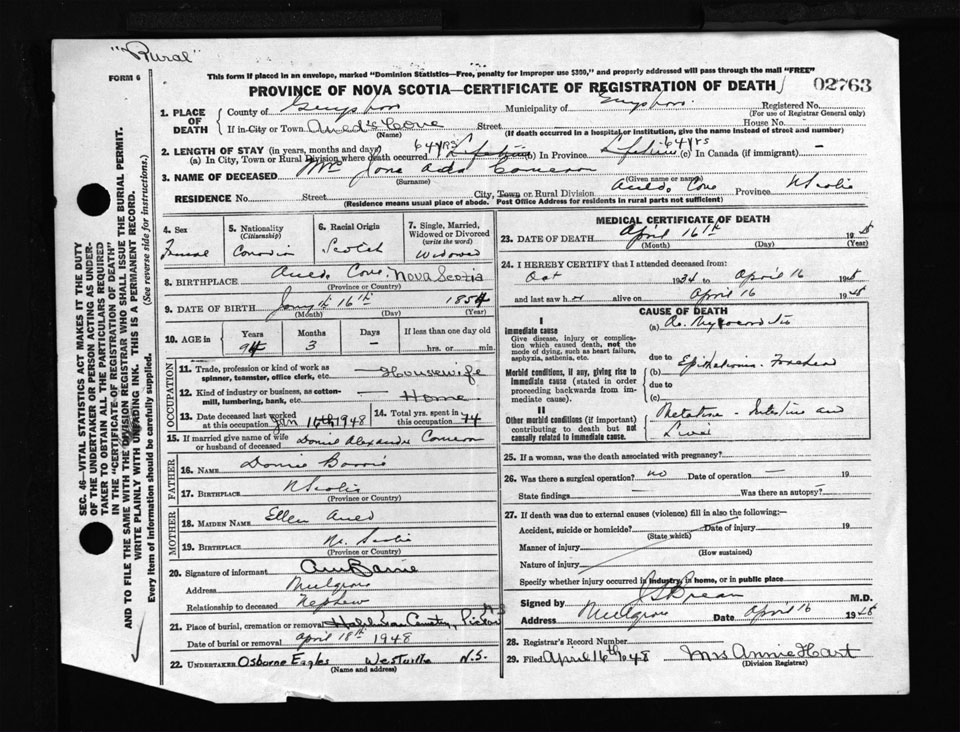 "Rural"
FORM 6
This form if placed in an envelope, marked "Dominion Statistics—Free, penalty for improper use $300," and properly addressed will pass through the mail "FREE"
PROVINCE OF NOVA SCOTIA—CERTIFICATE OF REGISTRATION OF DEATH
02763
SEC. 46—VITAL STATISTICS ACT MAKES IT THE DUTY
OF THE UNDERTAKER OR PERSON ACTING AS UNDER-
TAKER TO OBTAIN ALL THE PARTICULARS REQUIRED
IN THE "CERTIFICATE OF REGISTRATION OF DEATH"
AND TO FILE THE SAME WITH THE DIVISION REGISTRAR WHO SHALL ISSUE THE BURIAL PERMIT.
WRITE PLAINLY WITH UNFADING INK. THIS IS A PERMANENT RECORD.
Every item of information should be carefully supplied. (See reverse side for instructions.)
1. PLACE OF DEATH
County of Guysboro Municipality of Guysboro Registered No.
(For use of Registrar General only)
If in City or Town Auld's Cove Street House No.
(Name) (If death occurred in a hospital or institution, give the name instead of street and number)
2. LENGTH OF STAY (in years, months and days)
(a) In City, Town or Rural Division where death occurred 64 yrs Lifetime (b) In Province Lifetime 64 yrs (c) In Canada (if immigrant) —
3. NAME OF DECEASED Cameron
(Surname) (Given name or names)
RESIDENCE No. Street City, Town or Rural Division Aulds Cove Province N Scotia
(Residence means usual place of abode. Post Office Address for residents in rural parts not sufficient)
4. Sex
Female
5. Nationality
(Citizenship)
Canadian
6. Racial Origin
Scotch
7. Single, Married,
Widowed or Divorced
(write the word)
Widowed
8. BIRTHPLACE Aulds Cove Nova Scotia
(Province or Country)
9. DATE OF BIRTH 16th 1854
(Month) (Day) (Year)
10. AGE in
Years Months Days If less than one day old
94 3 — hrs. or min.
OCCUPATION
11. Trade, profession or kind of work as
spinner, teamster, office clerk, etc. Housewife
12. Kind of industry or business, as cotton-
mill, lumbering, bank, etc. Home
13. Date deceased last worked
at this occupation Jan 16th 1948
14. Total yrs. spent in
this occupation 74
15. If married give name of wife
or husband of deceased Alexander Cameron
FATHER
16. NAME
17. BIRTHPLACE N Scotia
(Province or Country)
MOTHER
18. MAIDEN NAME Ellen Auld
19. BIRTHPLACE N. Scotia
(Province or Country)
20. Signature of informant Barrie
Address Mulgrave
Relationship to deceased Nephew
21. Place of burial, cremation or removal Pictou N S
Date of burial or removal April 18th 1948
22. UNDERTAKER Osborne Eagles Westville N.S.
(Name and address)
MEDICAL CERTIFICATE OF DEATH
23. DATE OF DEATH April 16th 1948
(Month) (Day) (Year)
24. I HEREBY CERTIFY that I attended deceased from:
Oct 1934 to April 16 1948
and last saw her alive on April 16 1948
CAUSE OF DEATH
I
Immediate cause
Give disease, injury or complica-
tion which caused death, not the
mode of dying, such as heart failure,
asphyxia, asthenia, etc.
(a) Ac. Myocarditis
due to
Morbid conditions, if any, giving rise to
immediate cause (stated in order
proceeding backwards from im-
mediate cause).
(b) Epithelioma
due to
(c)
II
Other morbid conditions (if important)
contributing to death but not
causally related to immediate cause.
Intestine and
Liver
25. If a woman, was the death associated with pregnancy?
26. Was there a surgical operation? no Date of operation — 19
State findings Was there an autopsy? —
27. If death was due to external causes (violence) fill in also the following:—
Accident, suicide or homicide? Date of injury 19
(State which)
Manner of injury
(How sustained)
Nature of injury
Specify whether injury occurred in industry, in home, or in public place
Signed by M.D.
Address Mulgrave Date April 16 1948
28. Registrar's Record Number
29. Filed April 16th 48 Mrs Annie Hart
(Division Registrar)